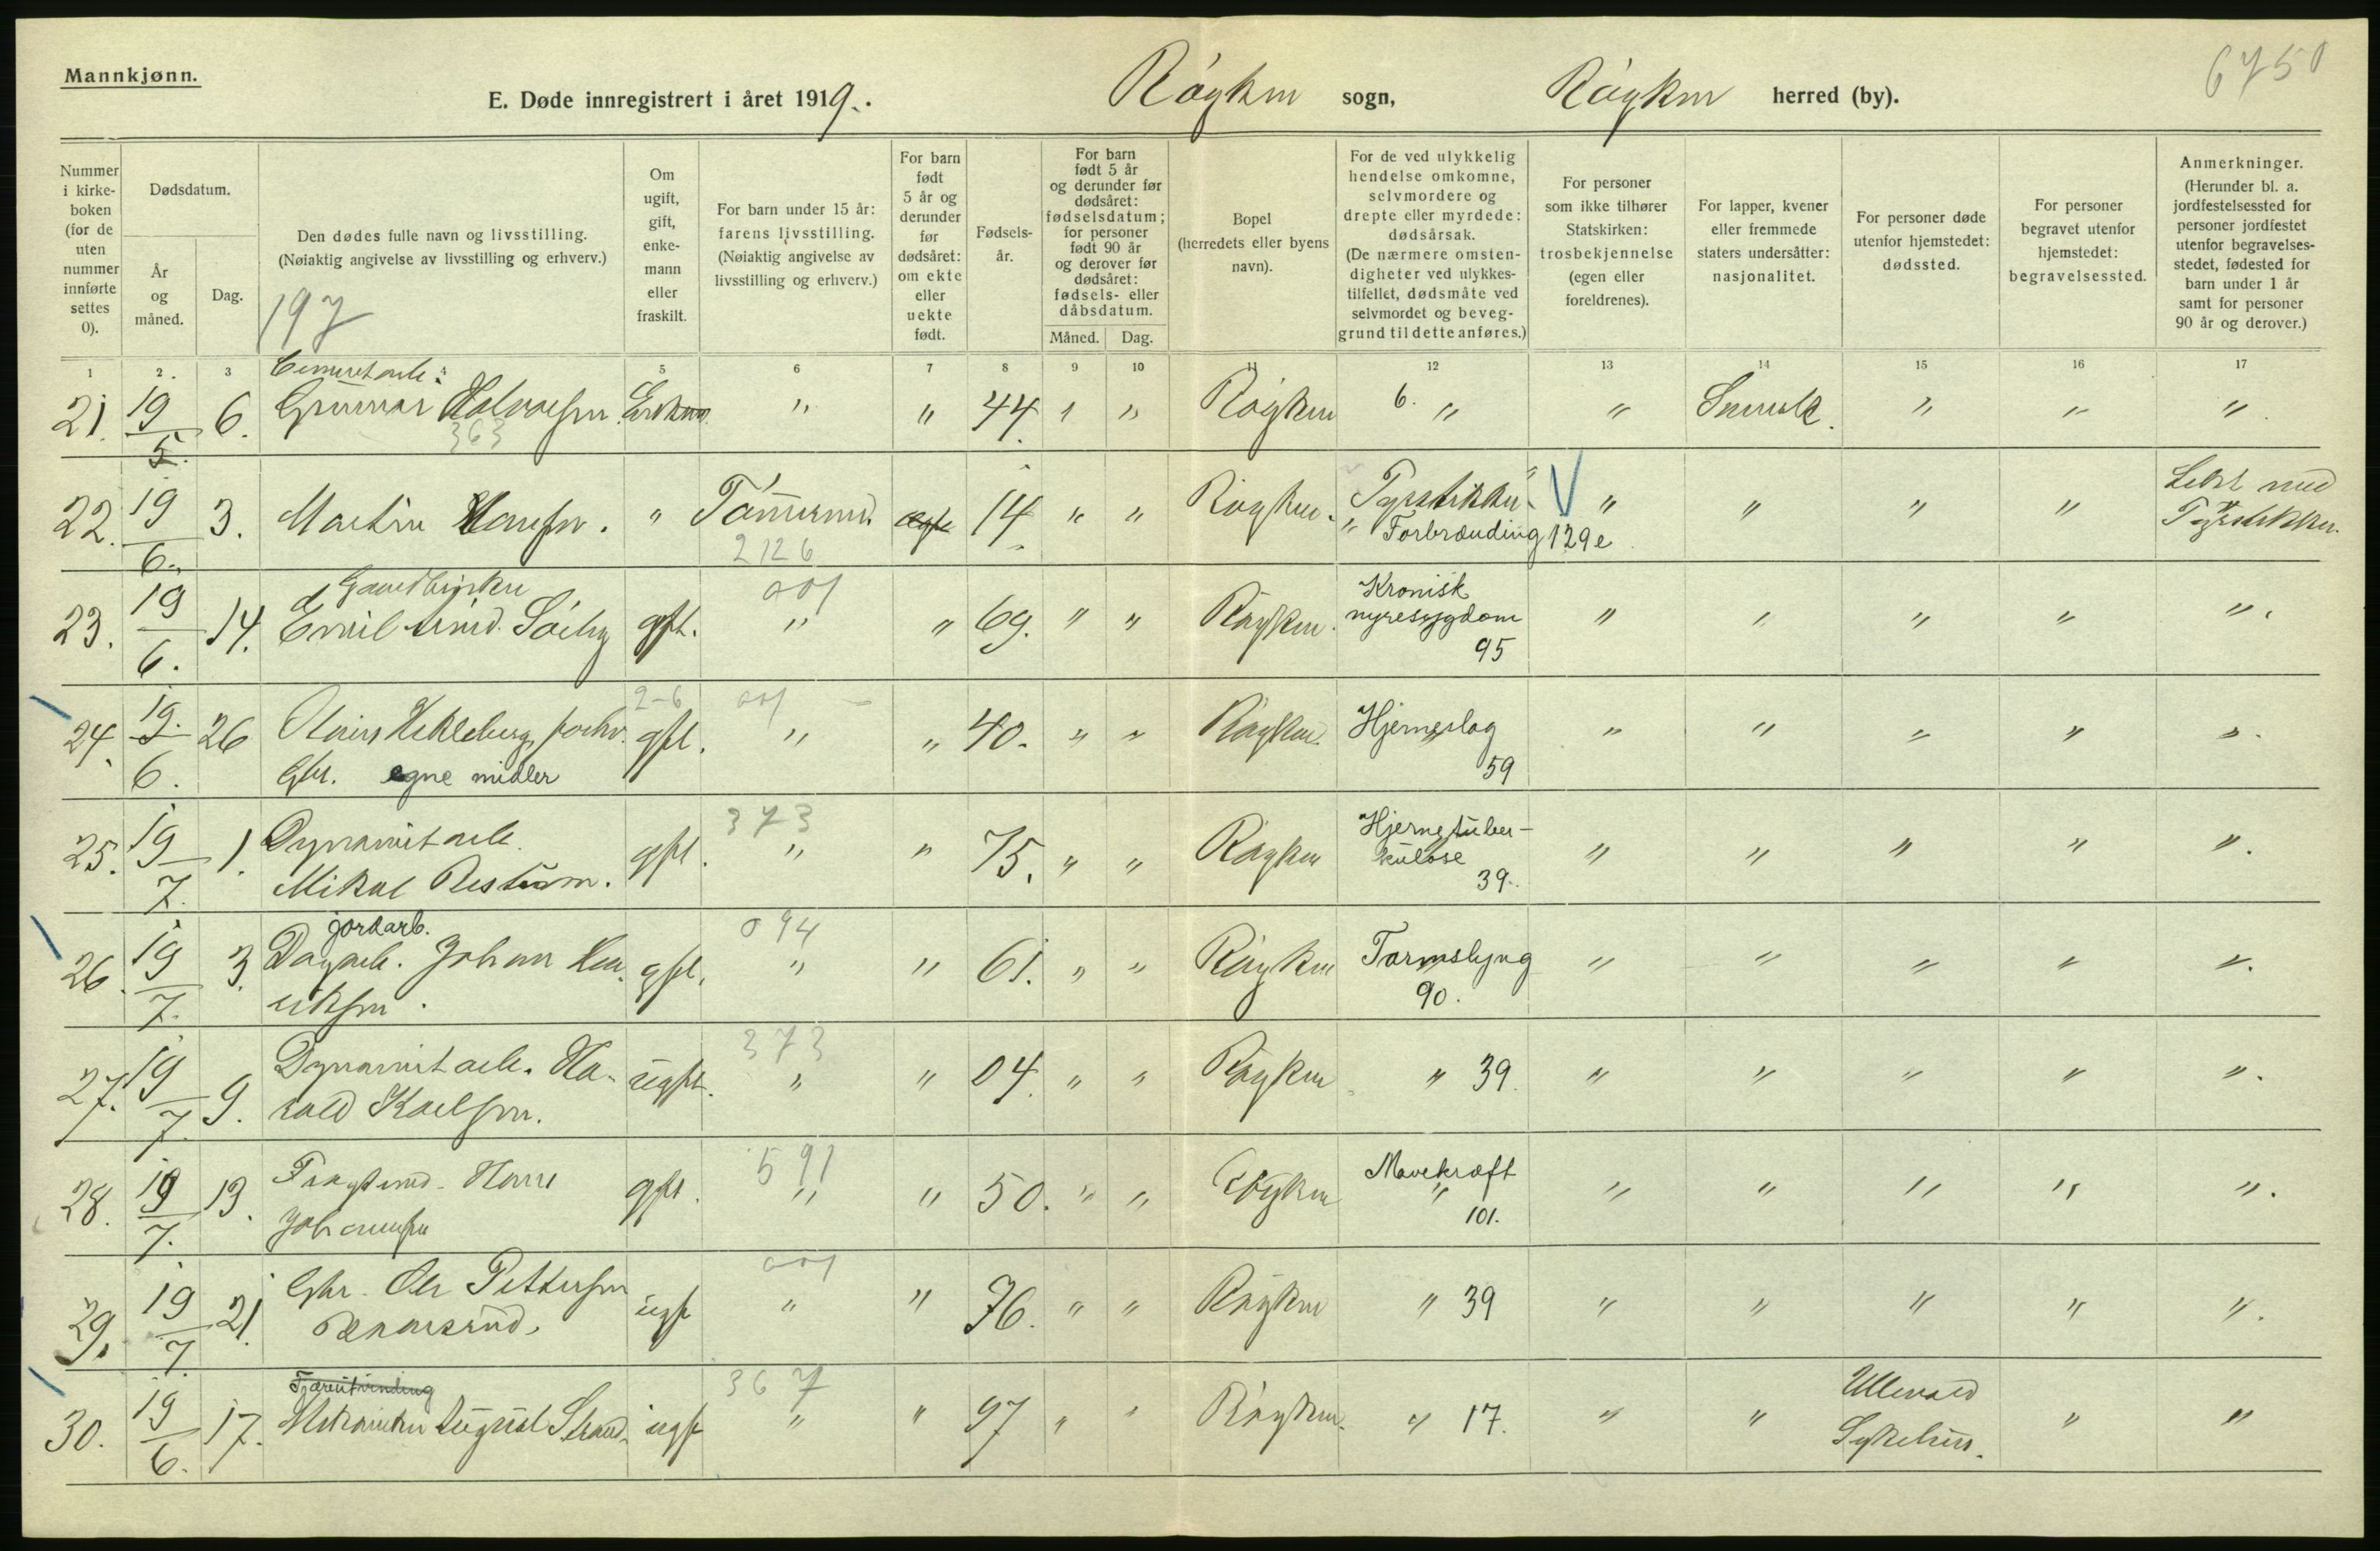 Mannkjønn.
6750
E. Døde innregistrert i året 1919. Røyken sogn, Røyken herred (by).
Nummer i kirke-boken (for de uten nummer innførte settes 0).
Dødsdatum.
År og måned.
Dag.
Den dødes fulle navn og livsstilling.
(Nøiaktig angivelse av livsstilling og erhverv.)
197
Om ugift, gift, enke-mann eller fraskilt.
For barn under 15 år: farens livsstilling.
(Nøiaktig angivelse av livsstilling og erhverv.)
For barn født 5 år og derunder før dødsåret: om ekte eller uekte født.
Fødsels-år.
For barn født 5 år og derunder før dødsåret: fødselsdatum; for personer født 90 år og derover før dødsåret: fødsels- eller dåbsdatum.
Måned. Dag.
Bopel
(herredets eller byens navn).
For de ved ulykkelig hendelse omkomne, selvmordere og drepte eller myrdede: dødsårsak.
(De nærmere omsten-digheter ved ulykkes-tilfellet, dødsmåte ved selvmordet og beveg-grund til dette anføres.)
For personer som ikke tilhører Statskirken: trosbekjennelse (egen eller foreldrenes).
For lapper, kvener eller fremmede staters undersåtter: nasjonalitet.
For personer døde utenfor hjemstedet: dødssted.
For personer begravet utenfor hjemstedet: begravelsessted.
Anmerkninger.
(Herunder bl. a. jordfestelsessted for personer jordfestet utenfor begravelses-stedet, fødested for barn under 1 år samt for personer 90 år og derover.)
1 2 3 4 5 6 7 8 9 10 11 12 13 14 15 16 17
Cementarb.
21. 19/5. 6. Gunnar Halvorsen. Enkem. " " 44. " " Røyken 6. " " Svensk. " " "
363
22. 19/6. 3. Martin Hansen. " Tømmerm. ægte 14. " " Røyken. Fyrstikker V " " " " Lekt med
2126 " Forbrænding 129e Fyrstikker.
Gaardbruker 001 Kronisk
23. 19/6. 14. Emil Søeby gift. " " 69. " " Røyken. nyresygdom " " " " "
95
2-6 001
24. 19/6. 26 Hekleberg, forhv. gift. " " 40. " " Røyken. Hjerneslag " " " " "
Gbr. egne midler 59
373 Hjernetuber-
25. 19/7. 1. Dynamitarb. gift. " " 75. " " Røyken kulose " " " " "
Mikal 39.
jordarb. 094
26. 19/7. 3. Dagarb. Johan Hen- gift. " " 61. " " Røyken Tarmslyng " " " " "
riksen. 90.
373
27. 19/7. 9. Dynamitarb. Ha- ugift. " " 04. " " Røyken " 39. " " " " "
rald Karlsen.
591
28. 19/7. 13. Hans gift. " " 50. " " Røyken Mavekræft " " " " "
Johannesen 101.
001
29. 19/7. 21. Gbr. Ole Pettersen ugift " " 76. " " Røyken " 39 " " " " "
367
30. 19/6. 17. Mekaniker August Strand. ugift " " 97 " " Røyken. " 17. " " Ullevaal " "
Sykehus.